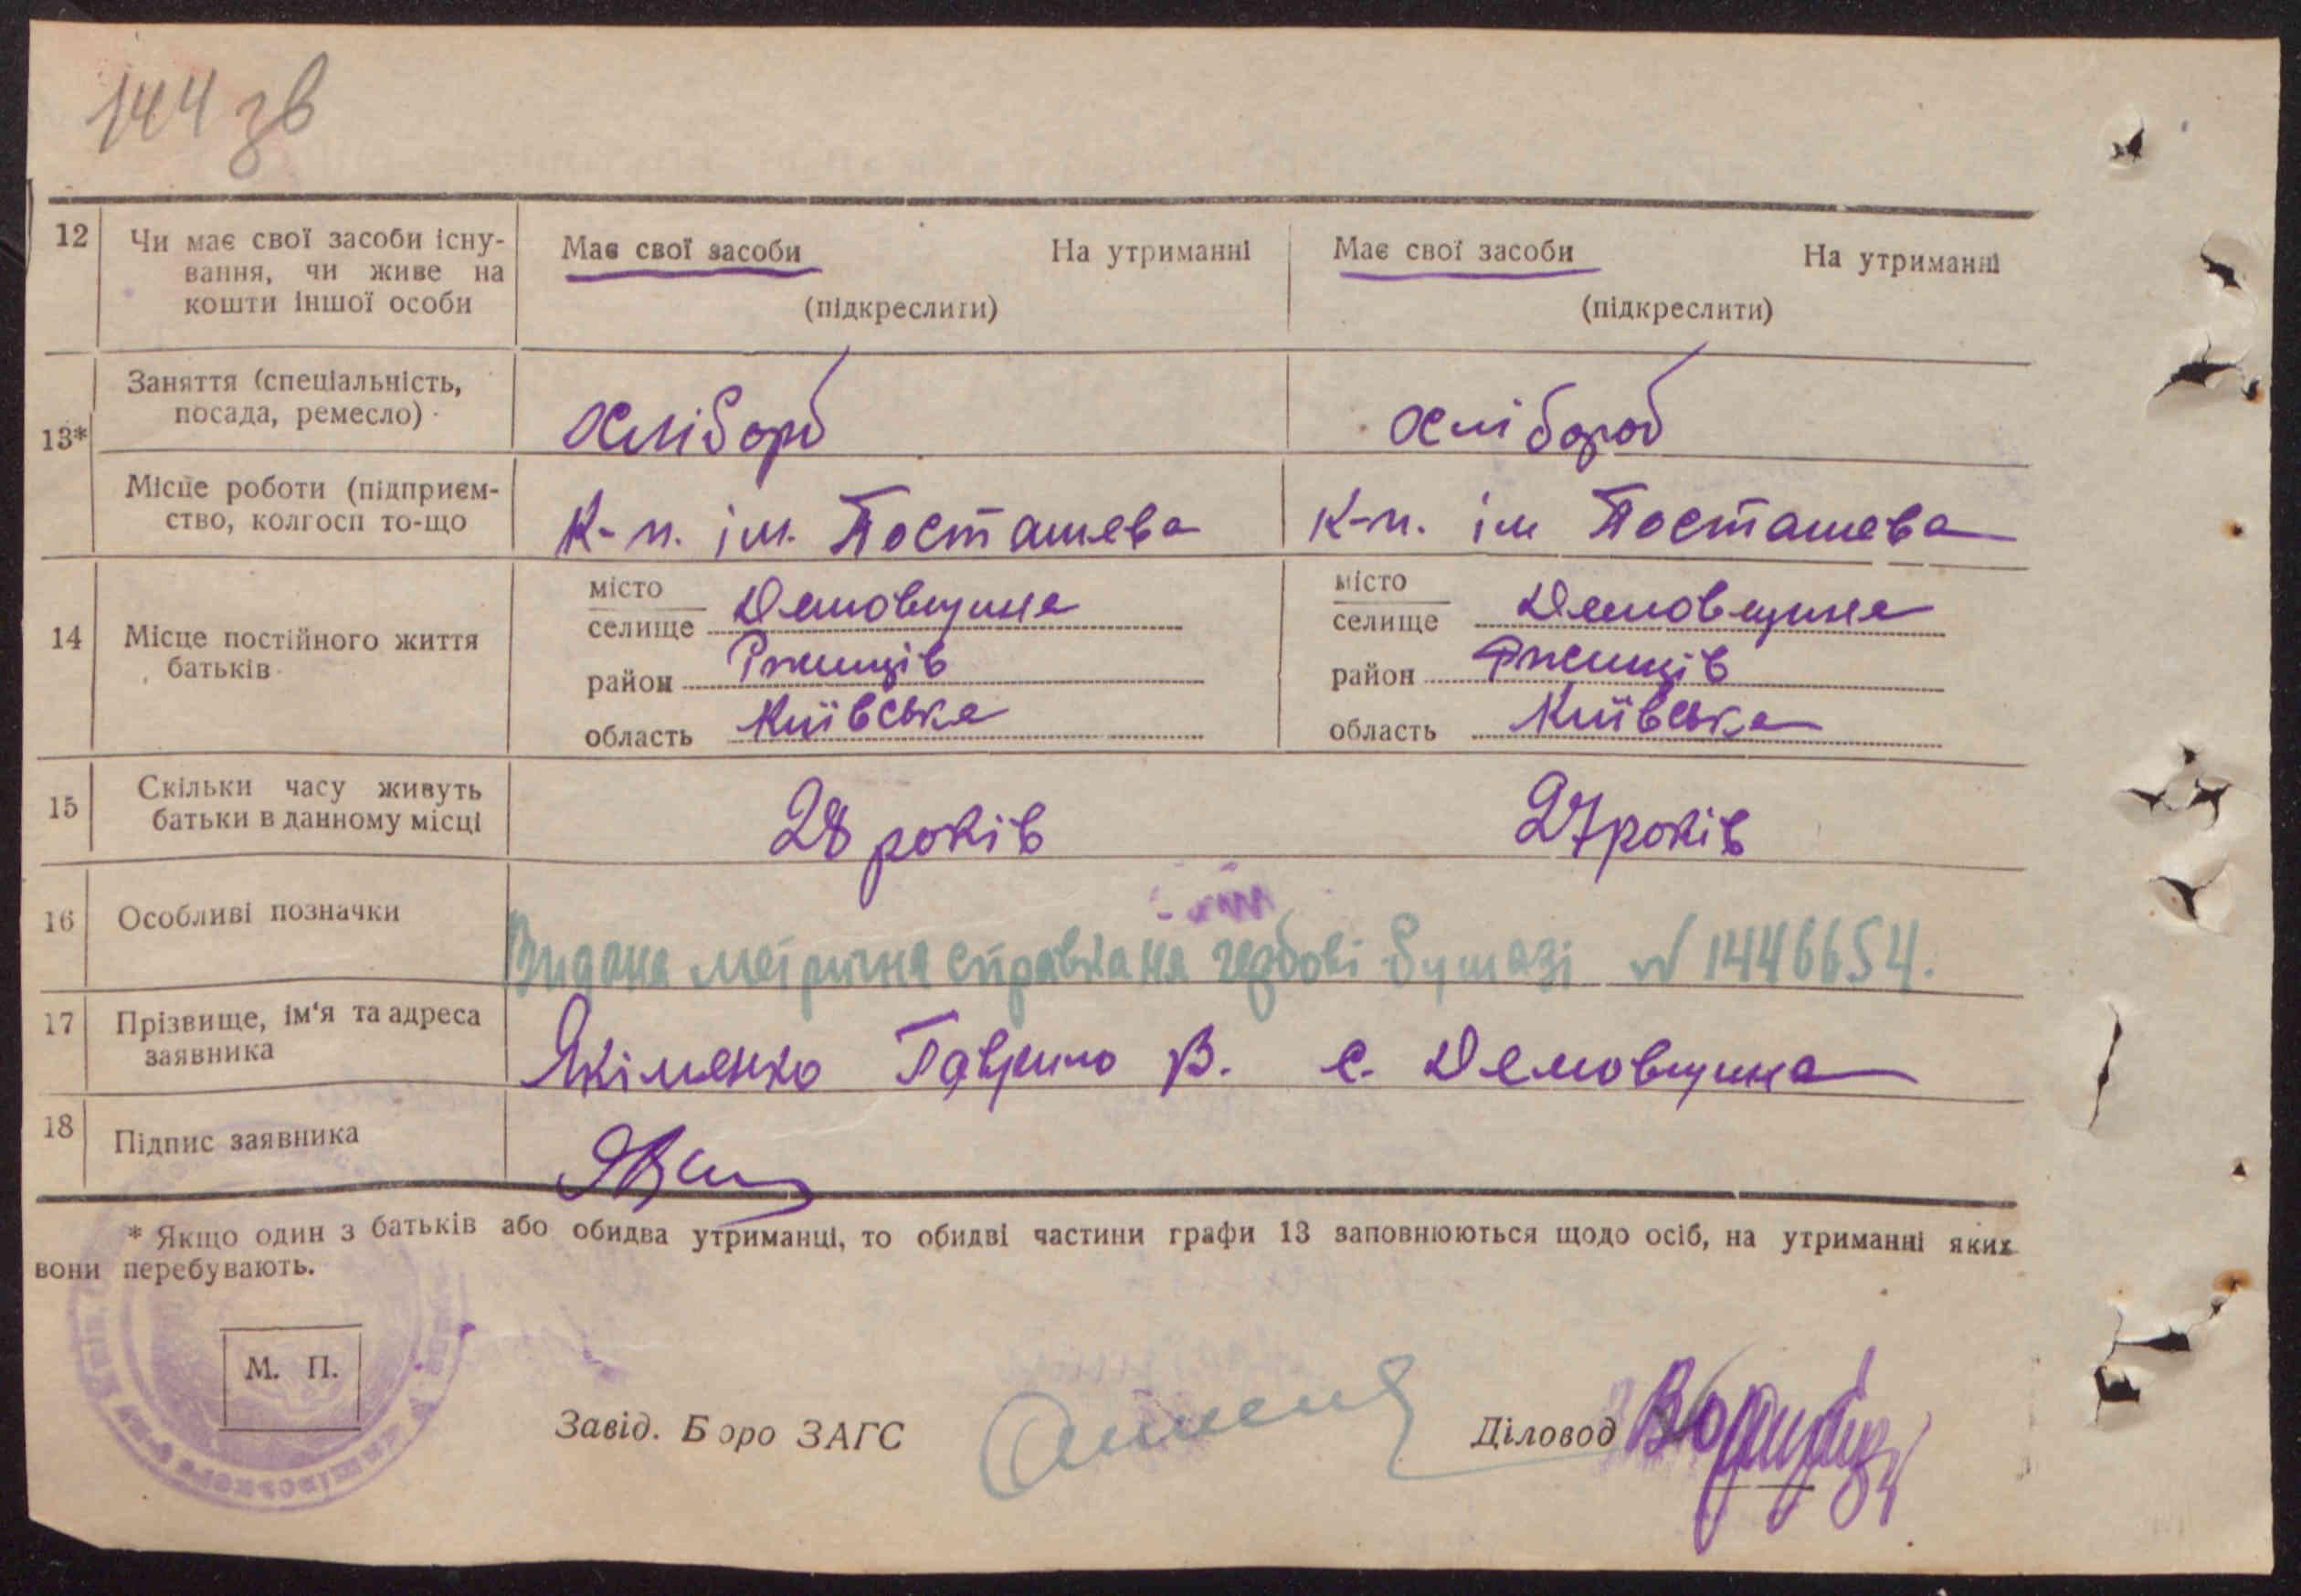 144 зв
12 Чи має свої засоби існу-
вання, чи живе на
кошти іншої особи
Має свої засоби На утриманні
(підкреслити)
Має свої засоби На утриманні
(підкреслити)
13*
Заняття (спеціальність,
посада, ремесло)
хлібороб хлібороб
Місце роботи (підприєм-
ство, колгосп то-що
К-п. ім. Посташева К-п. ім Посташева
14 Місце постійного життя
батьків
місто
селище Демовщина
район Ржищів
область Київська
місто
селище Демовщина
район Ржищів
область Київська
15 Скільки часу живуть
батьки в данному місці
28 років 27 років
16 Особливі позначки
Видана метрична справка на гербові бумазі № 1446654.
17 Прізвище, ім'я та адреса
заявника
Якіменко Гаврило В. с. Демовщина
18 Підпис заявника
* Якщо один з батьків або обидва утриманці, то обидві частини графи 13 заповнюються щодо осіб, на утриманні яких
вони перебувають.
М. П.
Завід. Бюро ЗАГС
Діловод